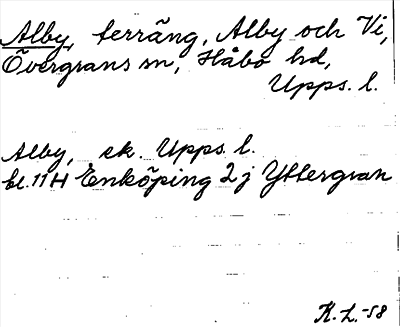 Alby, terräng, Alby och Vi,
Övergrans sn, Håbo hd,
Upps. l.
Alby, ek. Upps. l.
bl. 11H Enköping 2j Yttergran
K. L. -58